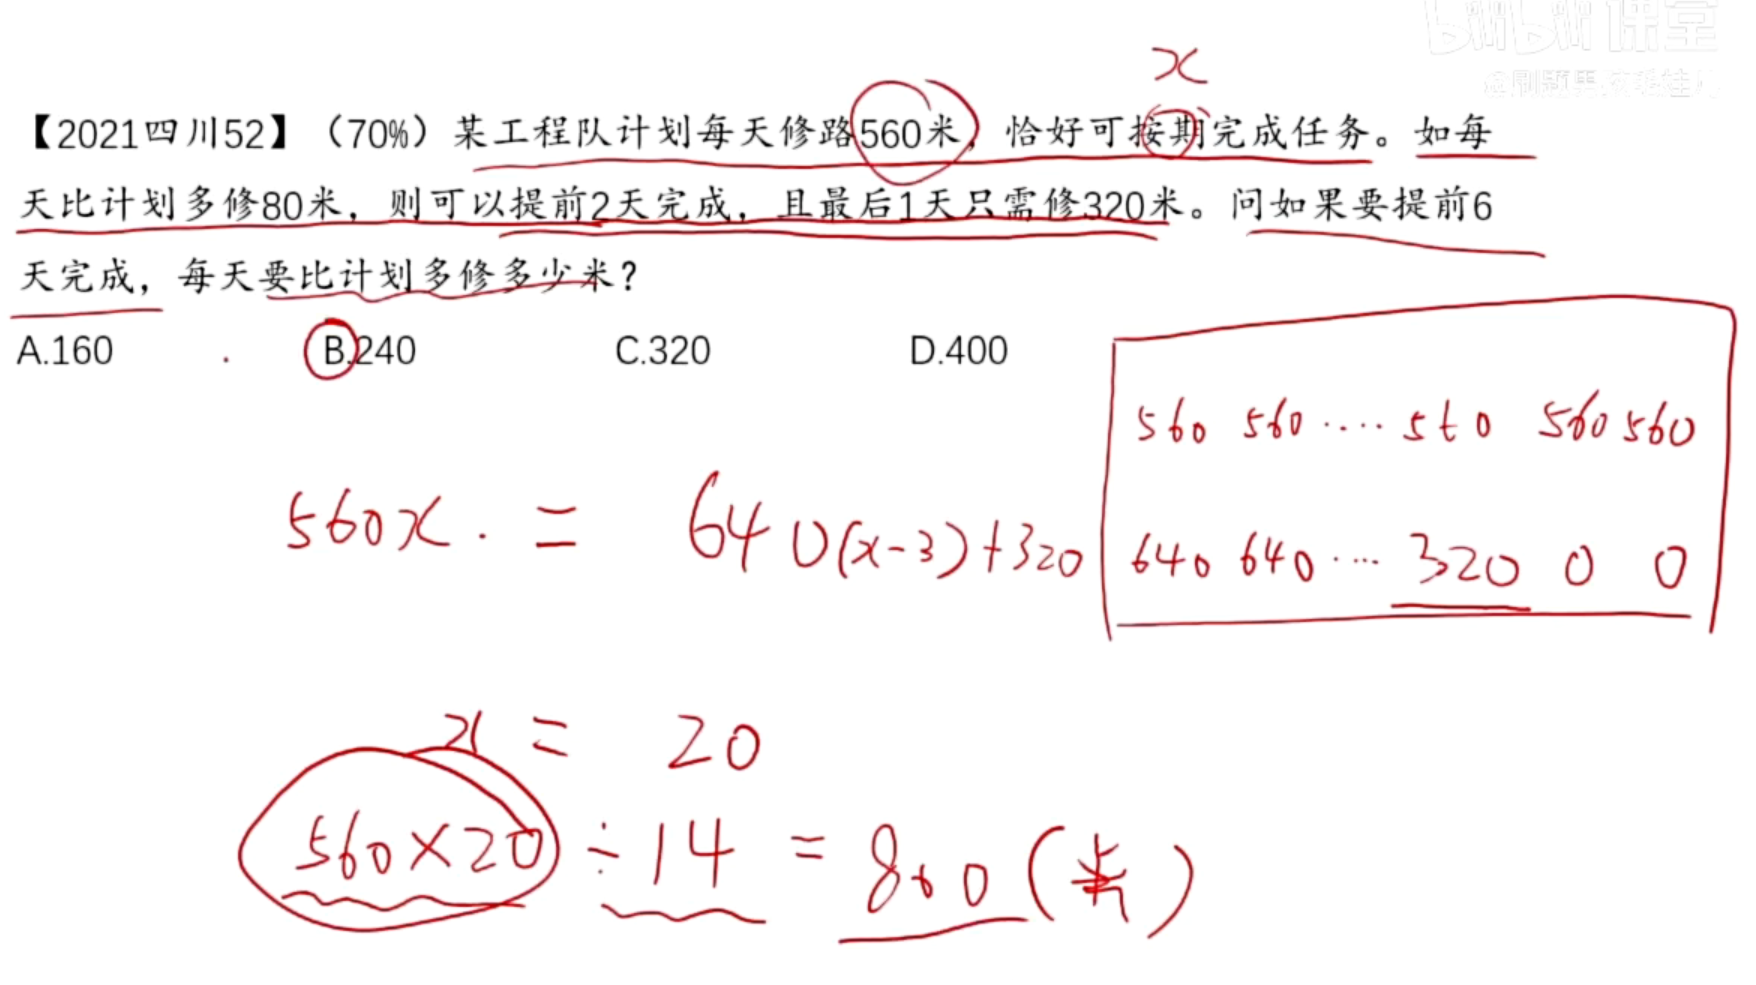 bilibili 课堂
x
【2021四川52】（70%）某工程队计划每天修路560米，恰好可按期完成任务。如每
天比计划多修80米，则可以提前2天完成，且最后1天只需修320米。问如果要提前6
天完成，每天要比计划多修多少米？
A.160 B.240 C.320 D.400
560 560 ···· 560 560 560
560x. = 640(x-3)+320
640 640 ···· 320 0 0
x = 20
560×20 ÷ 14 = 800 (米)